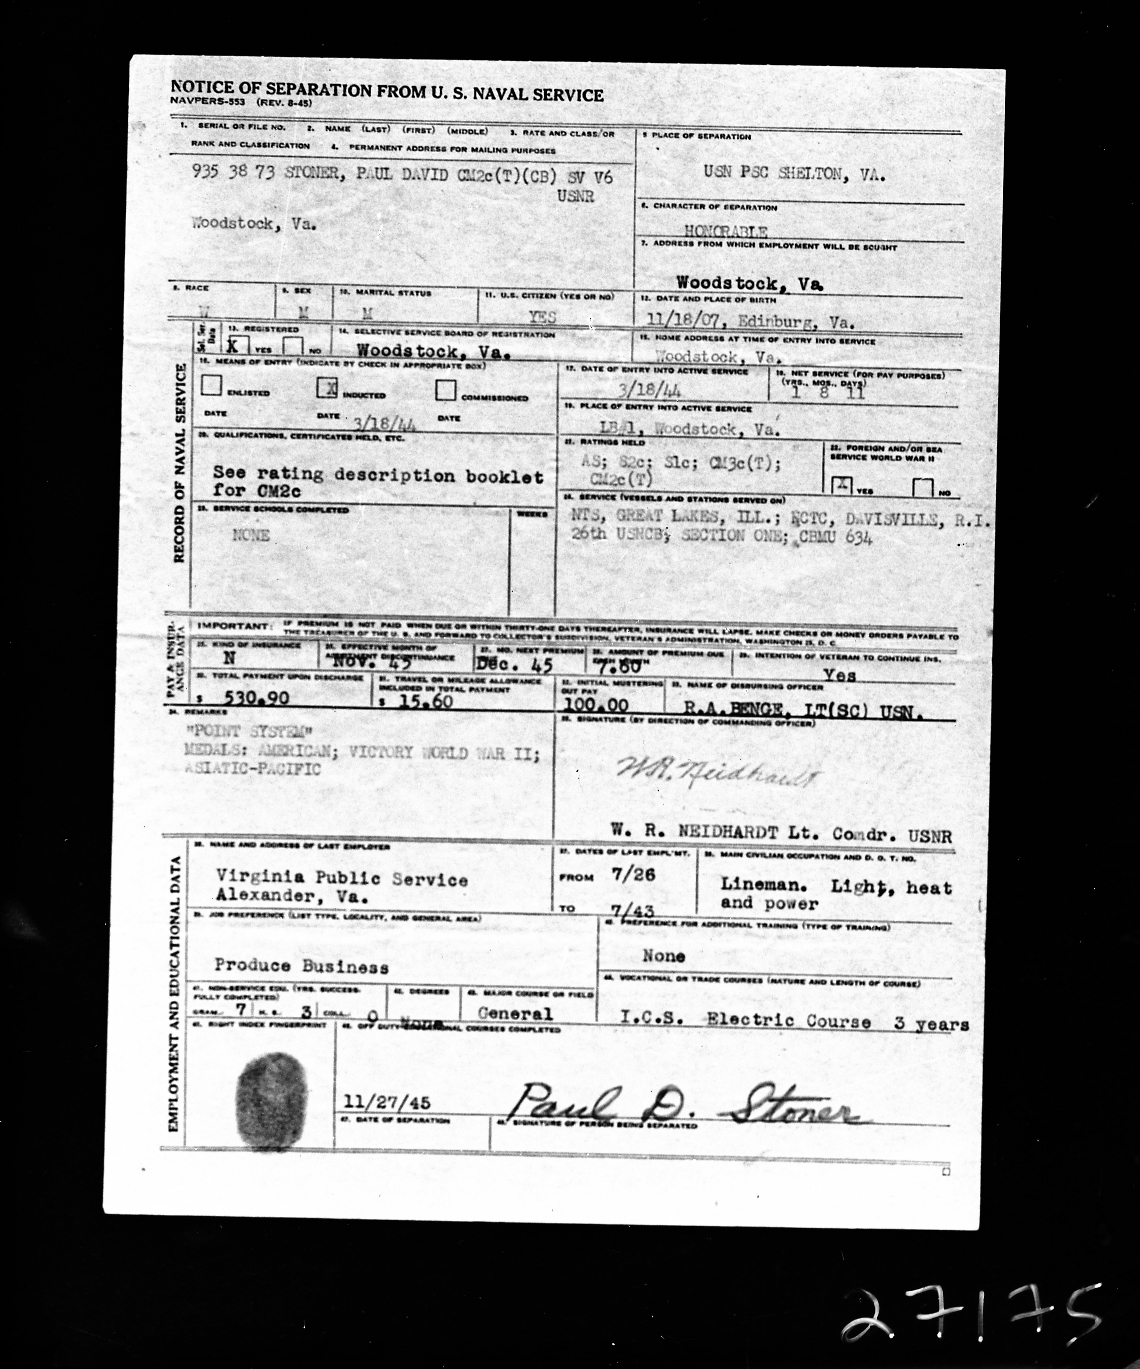 NOTICE OF SEPARATION FROM U. S. NAVAL SERVICE
NAVPERS-553 (REV. 8-45)
1. SERIAL OR FILE NO. 2. NAME (LAST) (FIRST) (MIDDLE) 3. RATE AND CLASS/OR
RANK AND CLASSIFICATION 4. PERMANENT ADDRESS FOR MAILING PURPOSES
935 38 73 STONER, PAUL DAVID CM2c(T)(CB) SV V6
USNR
Woodstock, Va.
5 PLACE OF SEPARATION
USN PSC SHELTON, VA.
6. CHARACTER OF SEPARATION
HONORABLE
7. ADDRESS FROM WHICH EMPLOYMENT WILL BE SOUGHT
Woodstock, Va
8. RACE
W
9. SEX
M
10. MARITAL STATUS
M
11. U.S. CITIZEN (YES OR NO)
YES
12. DATE AND PLACE OF BIRTH
11/18/07, Edinburg, Va.
Sel. Ser. Data
13. REGISTERED
X YES NO
14. SELECTIVE SERVICE BOARD OF REGISTRATION
Woodstock, Va.
15. HOME ADDRESS AT TIME OF ENTRY INTO SERVICE
Woodstock, Va.
RECORD OF NAVAL SERVICE
16. MEANS OF ENTRY (INDICATE BY CHECK IN APPROPRIATE BOX)
ENLISTED X INDUCTED COMMISSIONED
DATE DATE 3/18/44 DATE
17. DATE OF ENTRY INTO ACTIVE SERVICE
3/18/44
18. NET SERVICE (FOR PAY PURPOSES)
(YRS., MOS., DAYS)
1 8 11
19. PLACE OF ENTRY INTO ACTIVE SERVICE
LB#1, Woodstock, Va.
20. QUALIFICATIONS, CERTIFICATES HELD, ETC.
See rating description booklet
for CM2c
21. RATINGS HELD
AS; S2c; S1c; CM3c(T);
CM2c(T)
22. FOREIGN AND/OR SEA
SERVICE WORLD WAR II
X YES NO
23. SERVICE SCHOOLS COMPLETED WEEKS
NONE
24. SERVICE (VESSELS AND STATIONS SERVED ON)
NTS, GREAT LAKES, ILL.; NCTC, DAVISVILLE, R.I.
26th USNCB; SECTION ONE; CBMU 634
PAY & INSURANCE DATA
IMPORTANT: IF PREMIUM IS NOT PAID WHEN DUE OR WITHIN THIRTY-ONE DAYS THEREAFTER, INSURANCE WILL LAPSE. MAKE CHECKS OR MONEY ORDERS PAYABLE TO
THE TREASURER OF THE U. S. AND FORWARD TO COLLECTOR'S SUBDIVISION, VETERAN'S ADMINISTRATION, WASHINGTON 25, D. C.
25. KIND OF INSURANCE
N
26. EFFECTIVE MONTH OF
ALLOTMENT DISCONTINUANCE
Nov. 45
27. MO. NEXT PREMIUM
Dec. 45
28. AMOUNT OF PREMIUM DUE
7.80
29. INTENTION OF VETERAN TO CONTINUE INS.
Yes
30. TOTAL PAYMENT UPON DISCHARGE
$ 530.90
31. TRAVEL OR MILEAGE ALLOWANCE
INCLUDED IN TOTAL PAYMENT
$ 15.60
32. INITIAL MUSTERING
OUT PAY
100.00
33. NAME OF DISBURSING OFFICER
R.A.BENGE, LT(SC) USN.
34. REMARKS
"POINT SYSTEM"
MEDALS: AMERICAN; VICTORY WORLD WAR II;
ASIATIC-PACIFIC
35. SIGNATURE (BY DIRECTION OF COMMANDING OFFICER)
W.R. Neidhardt
W. R. NEIDHARDT Lt. Comdr. USNR
EMPLOYMENT AND EDUCATIONAL DATA
36. NAME AND ADDRESS OF LAST EMPLOYER
Virginia Public Service
Alexander, Va.
37. DATES OF LAST EMPL'MT.
FROM 7/26
TO 7/43
38. MAIN CIVILIAN OCCUPATION AND D. O. T. NO.
Lineman. Light, heat
and power
39. JOB PREFERENCE (LIST TYPE, LOCALITY, AND GENERAL AREA)
Produce Business
40. PREFERENCE FOR ADDITIONAL TRAINING (TYPE OF TRAINING)
None
41. NON-SERVICE EDU. (YRS. SUCCESS-
FULLY COMPLETED)
GRAM. 7 H. S. 3 COLL. 0
42. DEGREES
None
43. MAJOR COURSE OR FIELD
General
44. VOCATIONAL OR TRADE COURSES (NATURE AND LENGTH OF COURSE)
I.C.S. Electric Course 3 years
45. RIGHT INDEX FINGERPRINT
46. OFF DUTY EDUCATIONAL COURSES COMPLETED
11/27/45
47. DATE OF SEPARATION
Paul D. Stoner
48. SIGNATURE OF PERSON BEING SEPARATED
27175